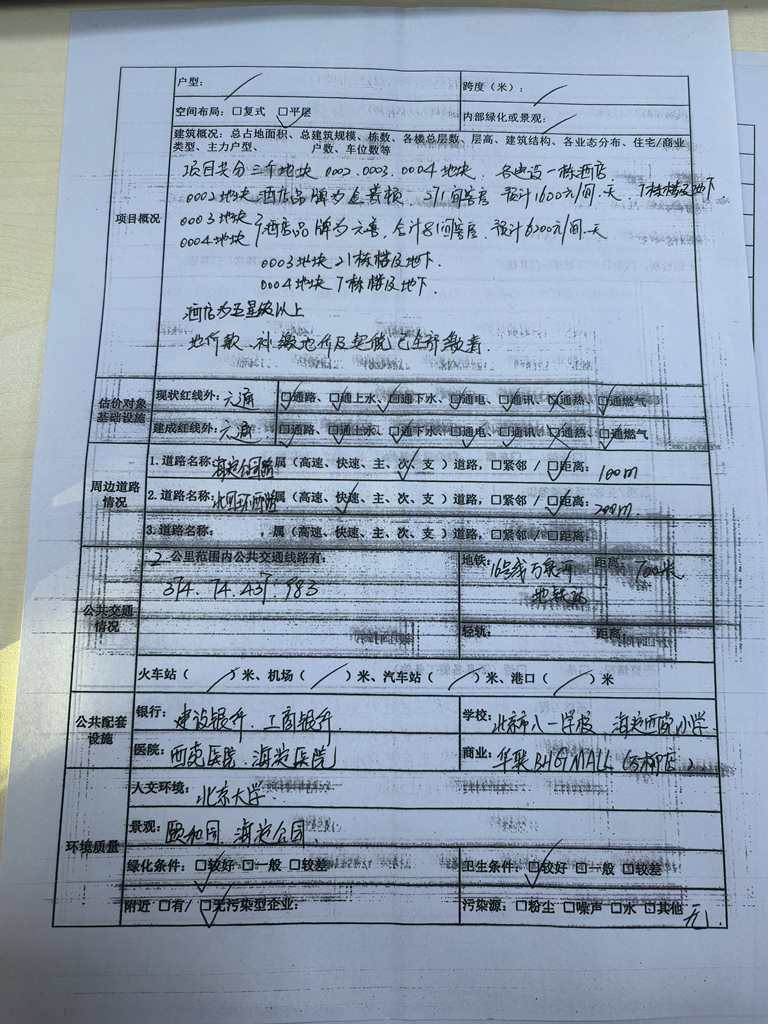 户型: ／ 跨度（米）: ／
空间布局: □复式 ☑平层 内部绿化或景观: ／
建筑概况: 总占地面积、总建筑规模、栋数、各楼总层数、层高、建筑结构、各业态分布、住宅/商业
类型、主力户型、 户数、车位数等
项目概况
项目共分三个地块 0002.0003.0004地块. 各建设一栋酒店.
0002地块 酒店品牌为 271间客房 预计1600元/间.天 7栋楼及地下
0003地块
0004地块 酒店品牌为元 . 合计81间客房. 预计6200元/间.天
0003地块 21栋楼及地下.
0004地块 7栋楼及地下.
酒店为五星级以上
地价款、补缴地价及契税已全部缴清.
估价对象
基础设施
现状红线外: 六通 ☑通路、☑通上水、☑通下水、☑通电、☑通讯、□通热、☑通燃气
建成红线外: 六通 ☑通路、☑通上水、☑通下水、☑通电、☑通讯、□通热、☑通燃气
周边道路
情况
1.道路名称: 海淀公园路 属（高速、快速、主、次、支）道路，□紧邻 / ☑距离: 100m
2.道路名称: 北四环西路 属（高速、快速、主、次、支）道路，□紧邻 / ☑距离: 200m
3.道路名称: ，属（高速、快速、主、次、支）道路，□紧邻 / □距离:
公共交通
情况
2 公里范围内公共交通线路有:
374. 74. 437. 983
地铁: 16号线万泉河 地铁站 距离: 700米
轻轨: 距离:
火车站（ ／ ）米、机场（ ／ ）米、汽车站（ ／ ）米、港口（ ／ ）米
公共配套
设施
银行: 建设银行、工商银行. 学校: 北京市八一学校、海淀西苑小学.
医院: 西苑医院、海淀医院 商业: 华联BHG MALL（万柳店）
环境质量
人文环境: 北京大学.
景观: 颐和园、海淀公园.
绿化条件: ☑较好 □一般 □较差 卫生条件: ☑较好 □一般 □较差
附近 □有/ ☑无污染型企业: 污染源: □粉尘 □噪声 □水 □其他 无.